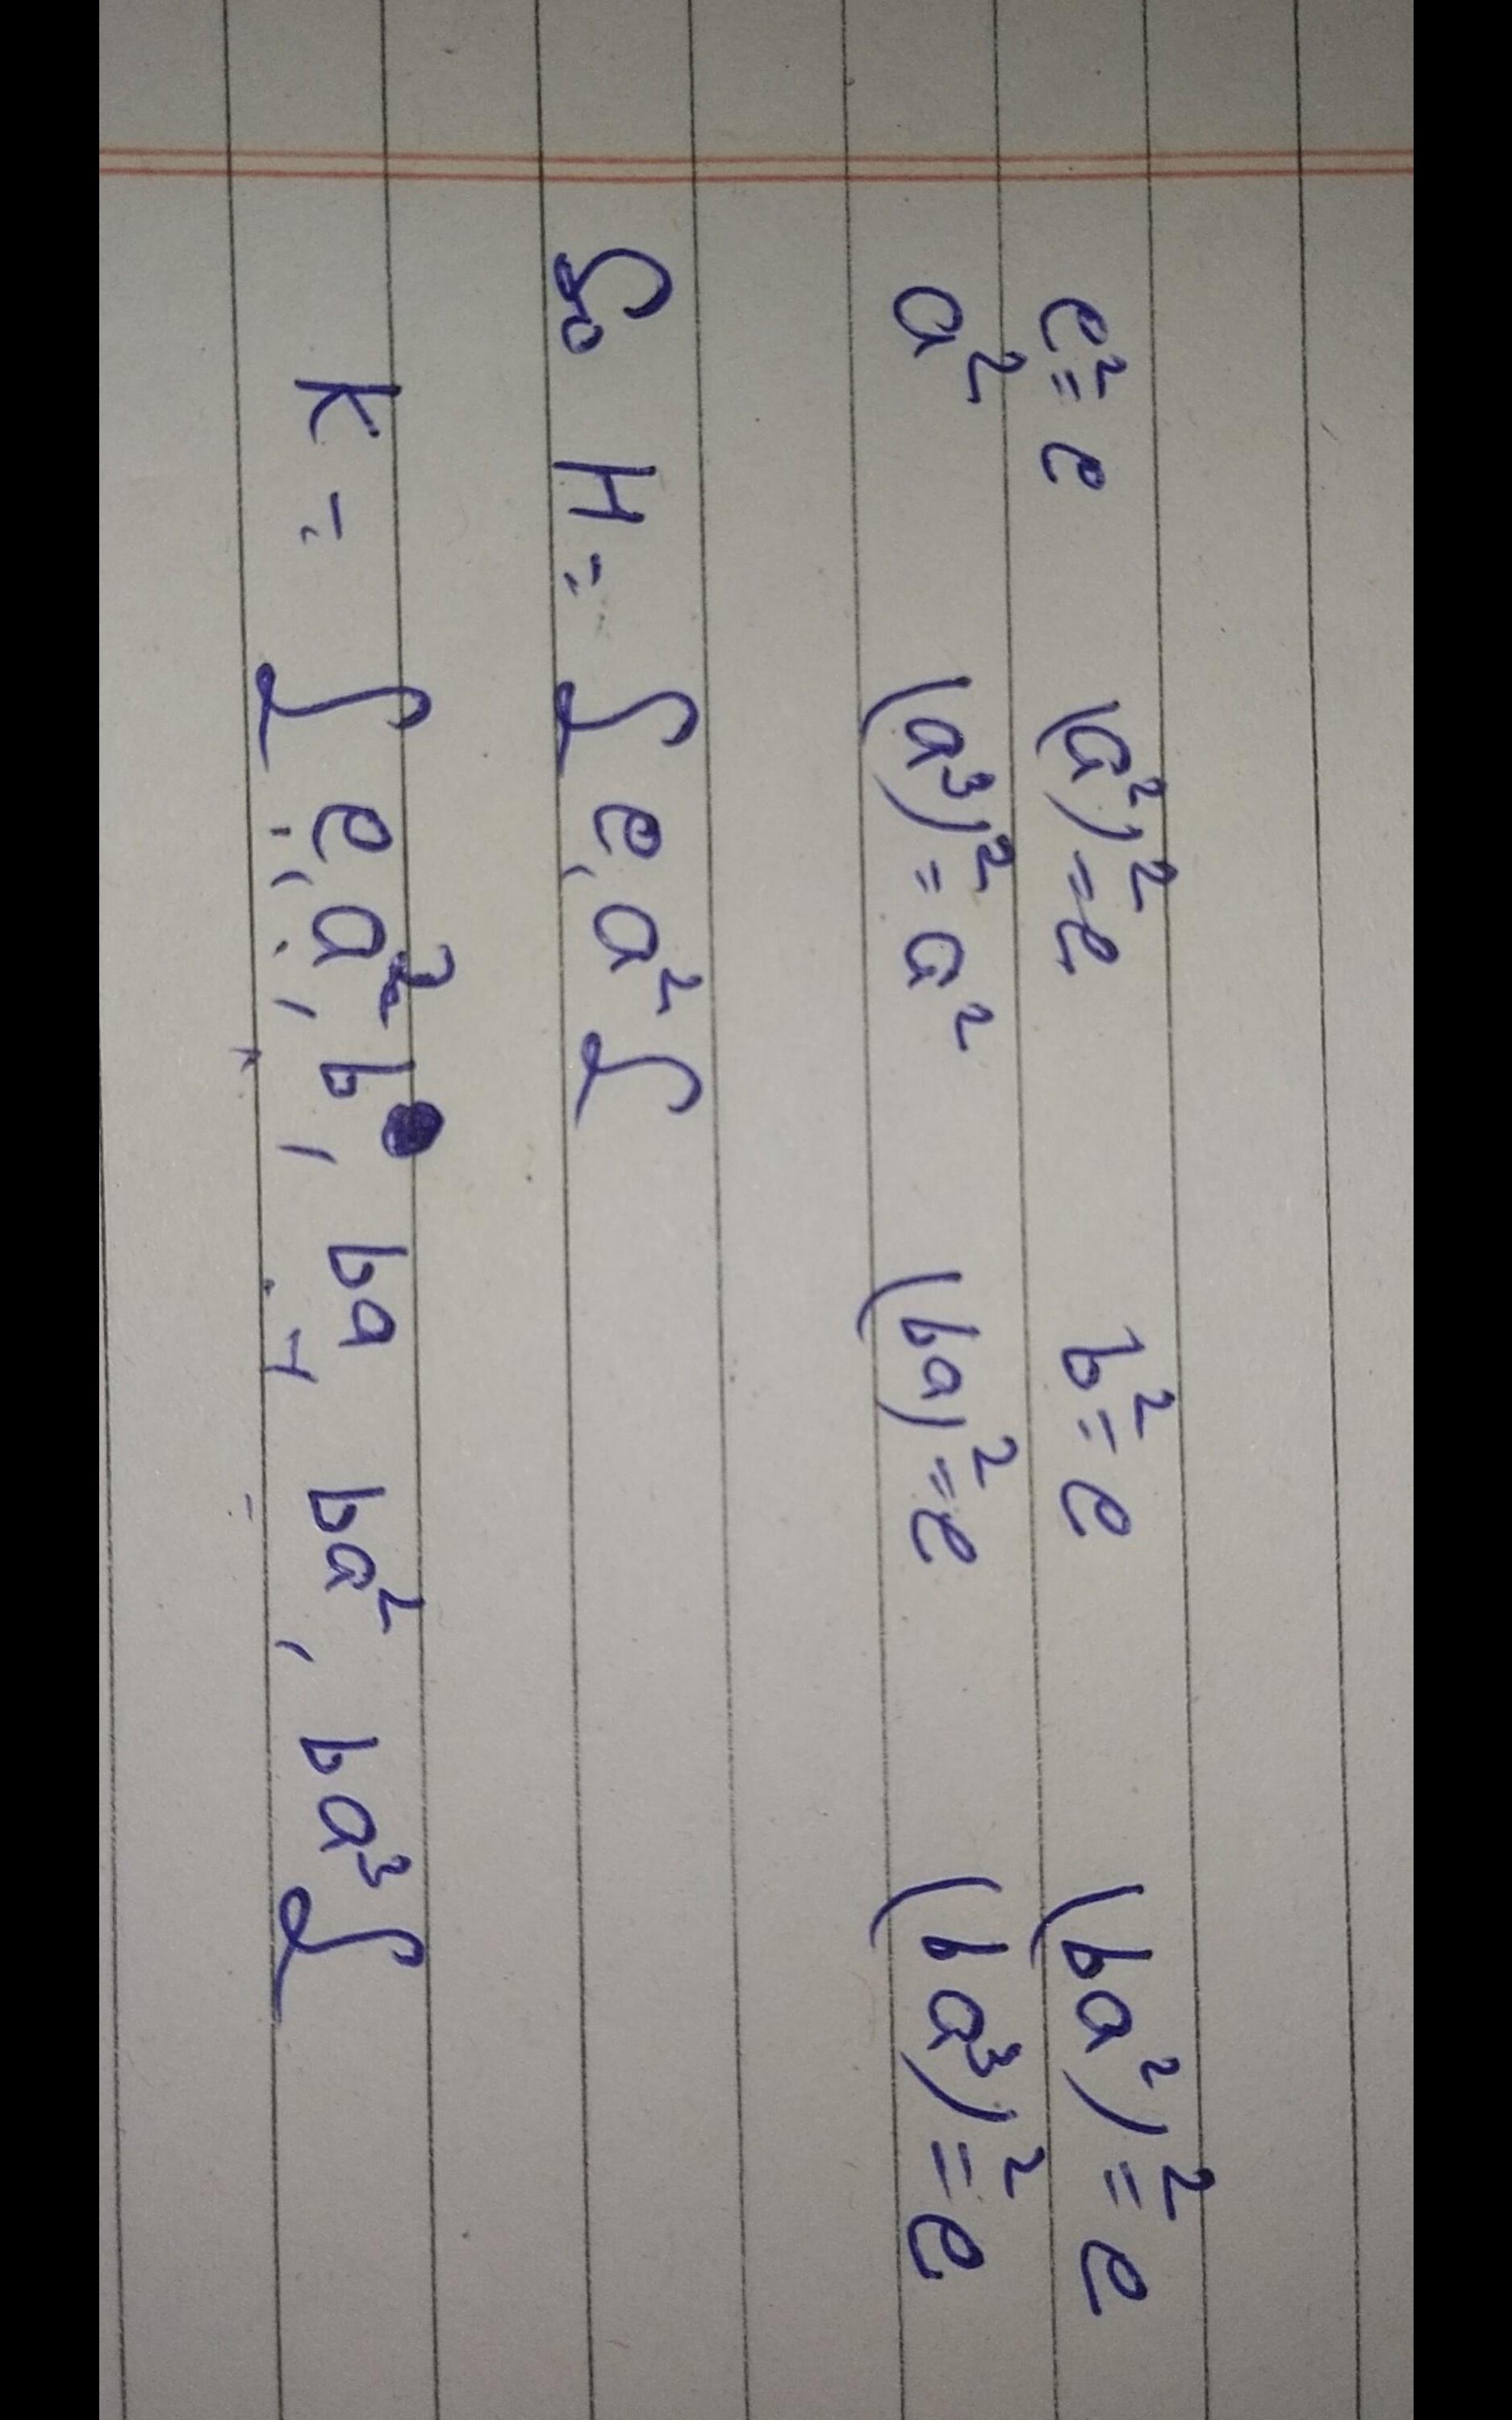 e² = e (a²)² = e b² = e (ba²)² = e
a² (a³)² = a² (ba)² = e (ba³)² = e
So H = { e, a² }
K = { e, a², b, ba, ba², ba³ }